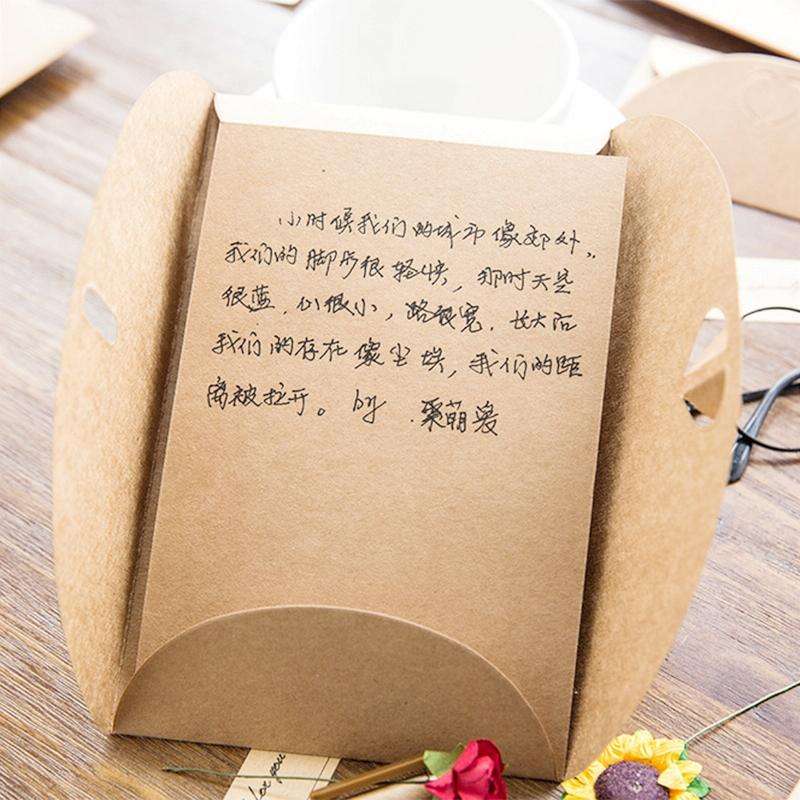 小时候我们的城市像郊外,
我们的脚步很轻快,那时天是
很蓝,心很小,路很宽.长大后
我们的存在像尘埃,我们的距
离被拉开。by.栗萌爱
for you